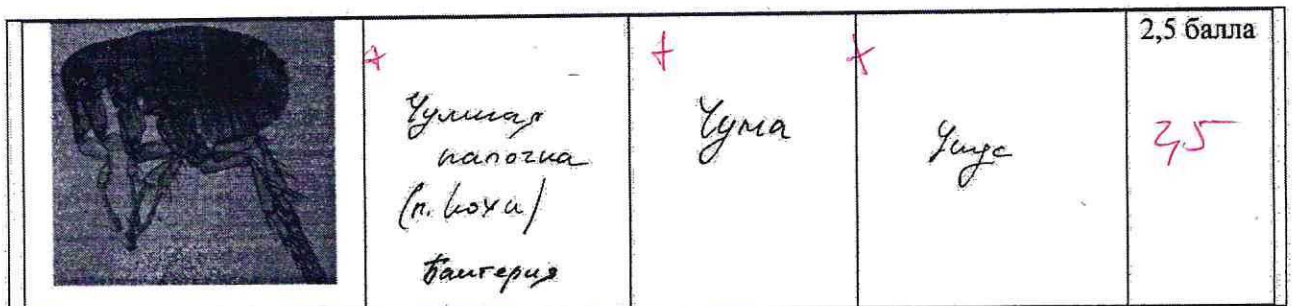 +
Чумная
палочка
(п. Коха)
Бактерия
+
Чума
+
Укус
2,5 балла
2,5